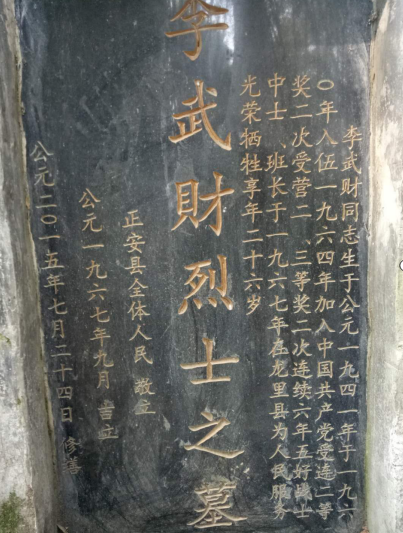 李武财同志生于公元一九四一年于一九六
〇年入伍一九六四年加入中国共产党受连二等
奖二次受营二、三等奖二次连续六年五好战士
中士、班长于一九六七年在龙里县为人民服务
光荣牺牲享年二十六岁
李武财烈士之墓
正安县全体人民 敬立
公元一九六七年九月 吉立
公元二〇一五年七月二十四日 修缮